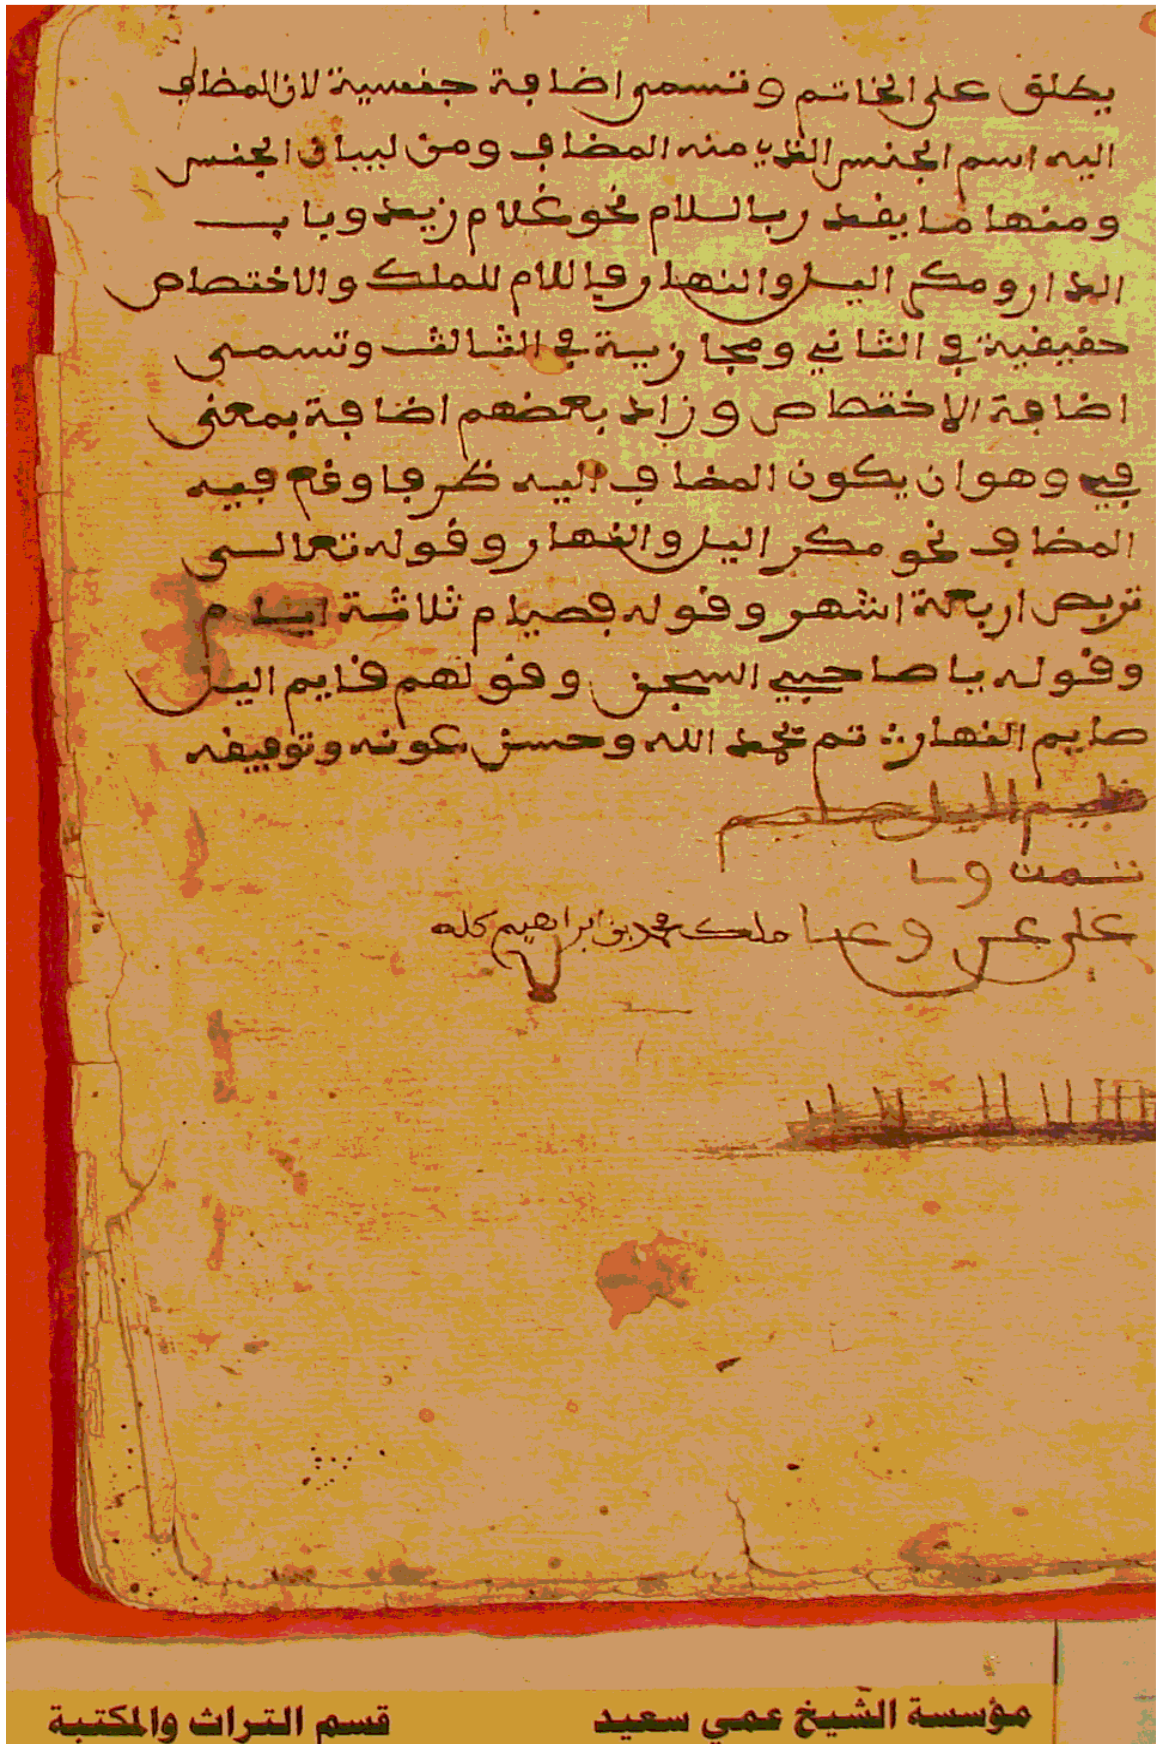 يطلق على الخاتم وتسمى اضافة جنسية لان المضاف
اليه اسم الجنس الذي منه المضاف ومن لبيان الجنس
ومنها ما يقدر بالسلام نحو غلام زيد وباب
الدار ومكر اليل والنهار فاللام للملك والاختصاص
حقيقية في الثاني ومجازية في الثالث وتسمى
اضافة الاختصاص وزاد بعضهم اضافة بمعنى
في وهو ان يكون المضاف اليه ظرفا وقع فيه
المضاف نحو مكر اليل والنهار وقوله تعالى
تربص اربعة اشهر وقوله فصيام ثلاثة ايام
وقوله يا صاحبي السجن وقولهم قايم اليل
صايم النهار تم بحمد الله وحسن عونه وتوفيقه
اليل صايم
تمت و
على و ملك محمد بن ابراهيم
مؤسسة الشيخ عمي سعيد
قسم التراث والمكتبة